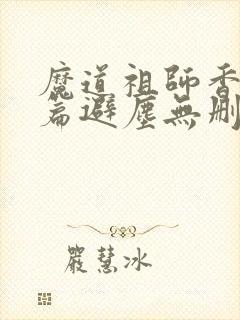 魔道祖師香
篇避塵無刪
嚴慧冰